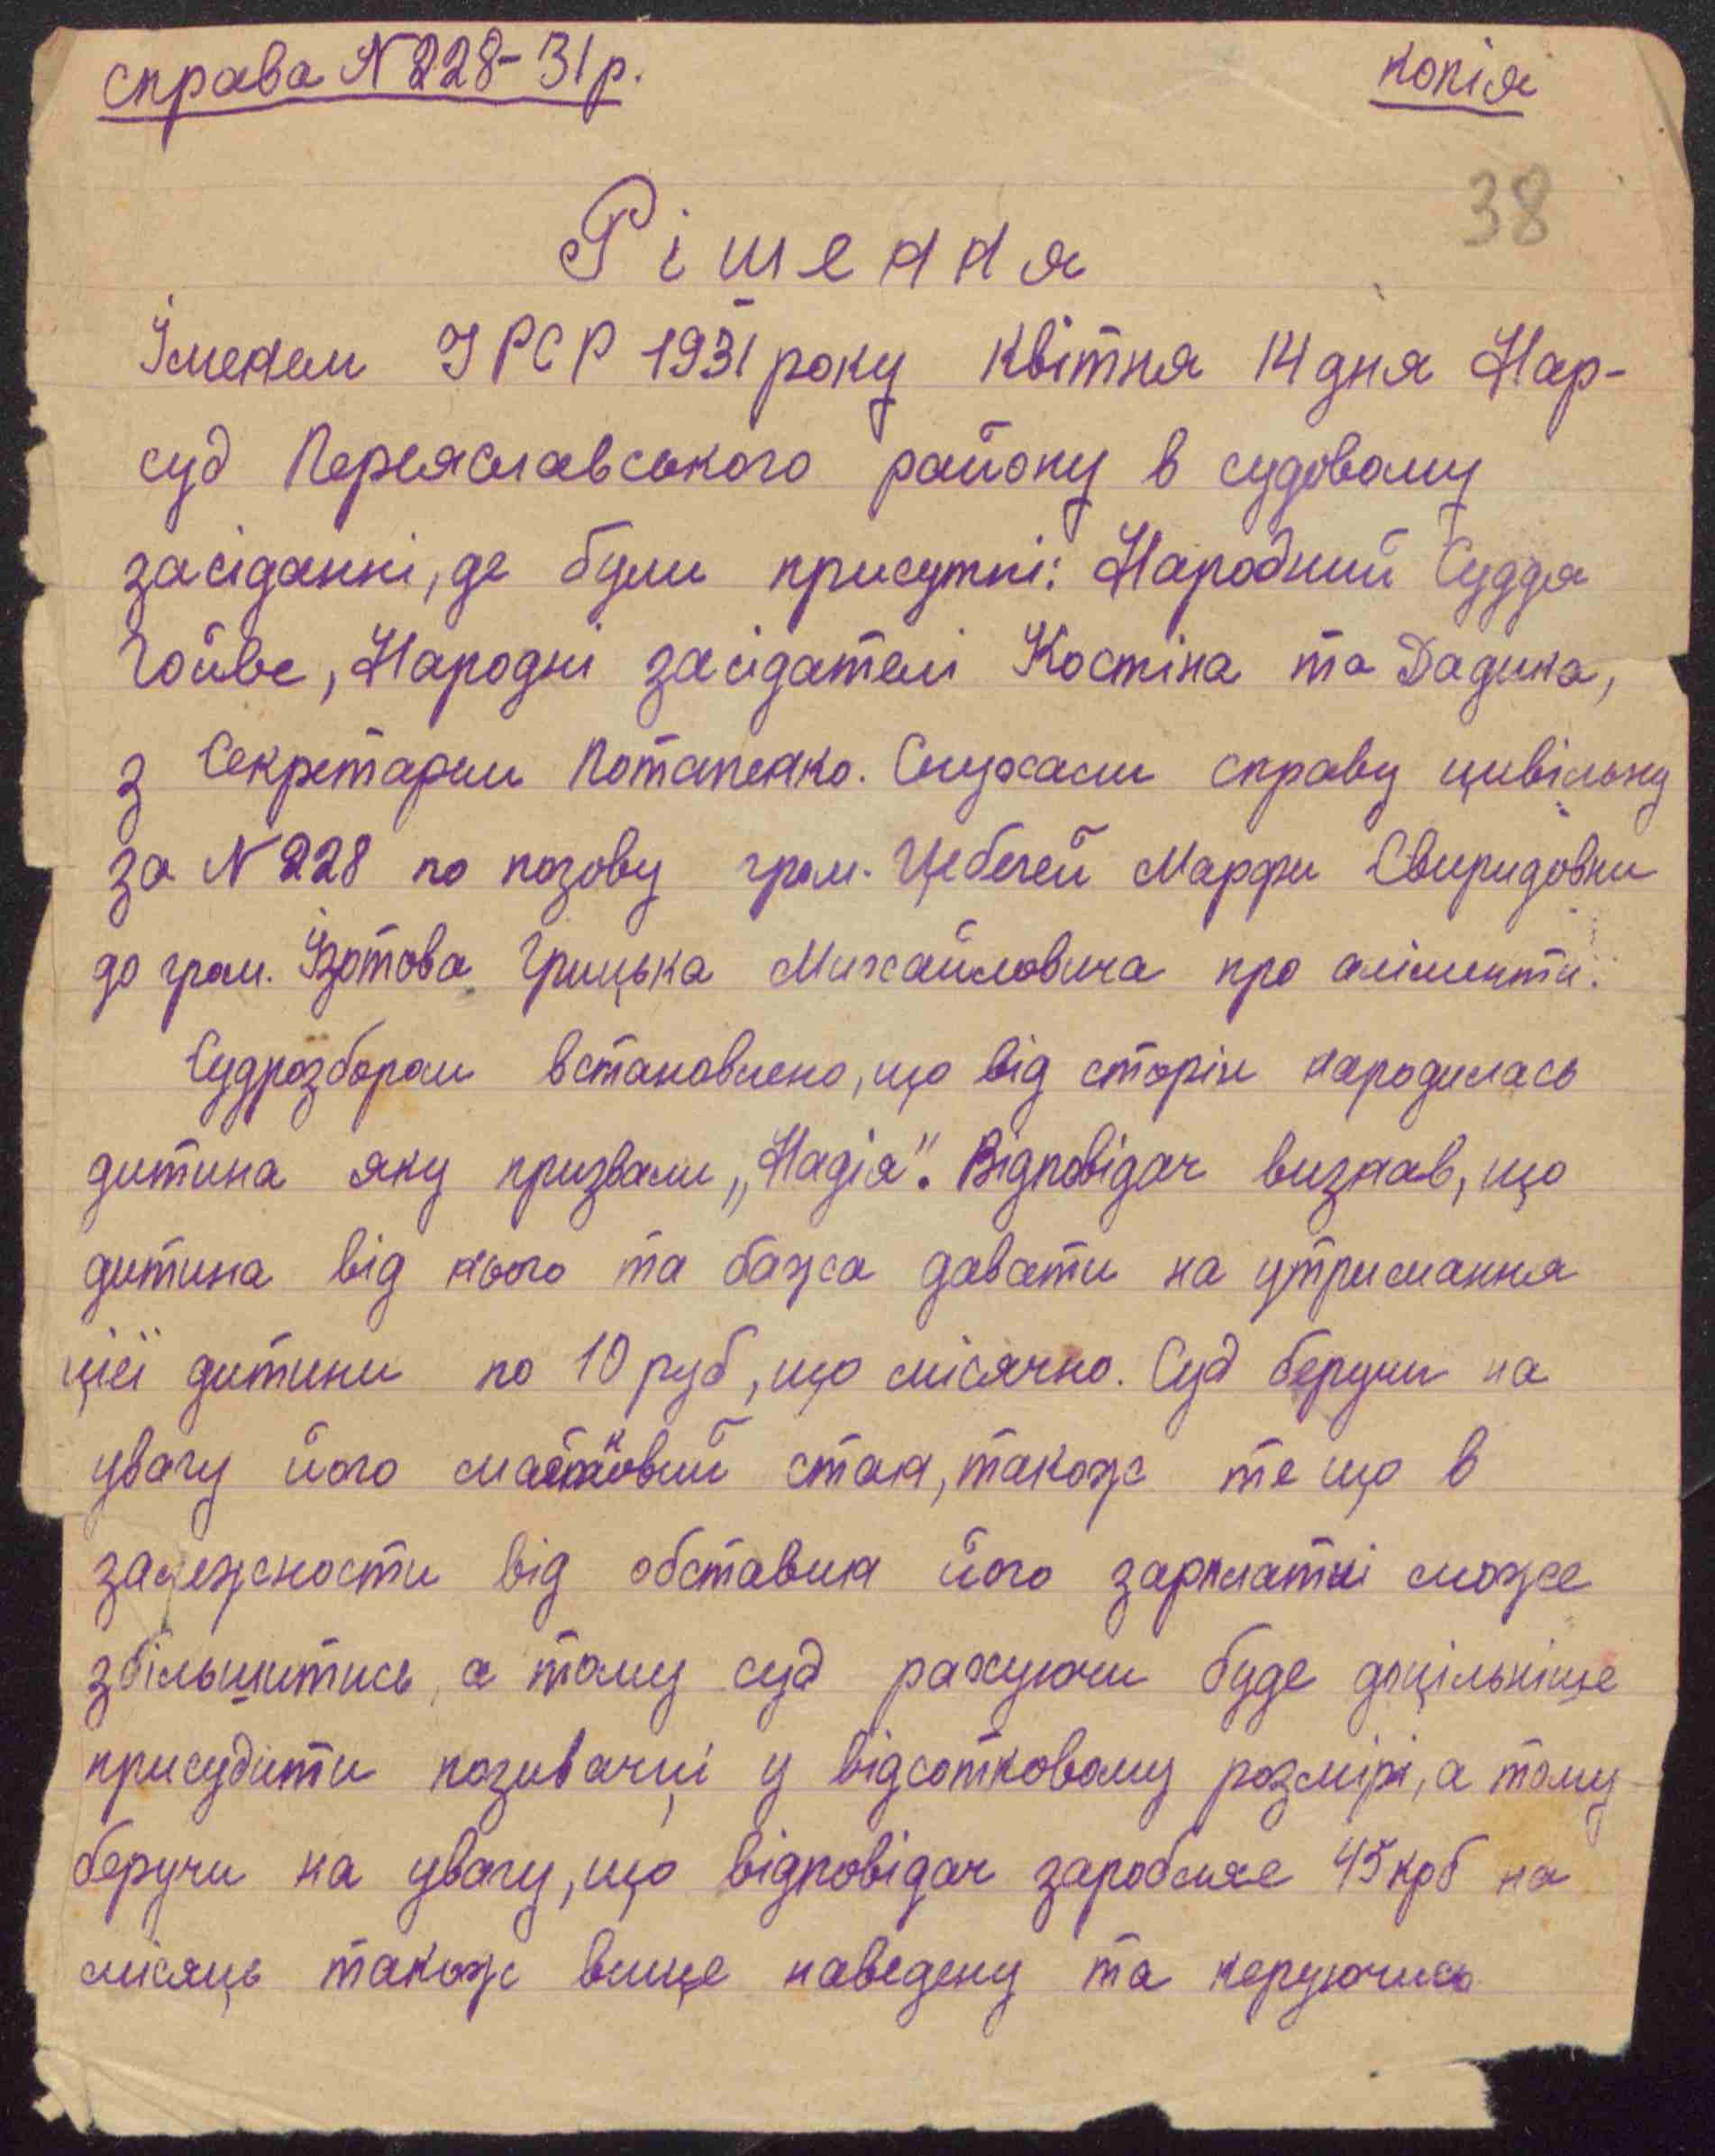 справа N 228-31 р.
копія
38
Рішення
Іменем УРСР 1931 року квітня 14 дня Нар-
суд Переяславського району в судовому
засіданні, де були присутні: Народний Суддя
Гойве, Народні засідателі Костіна та Дадика,
з Секретарем Потапенко. Слухали справу цивільну
за N 228 по позову гром. Цебегей Марфи Свиридовни
до гром. Ізотова Грицька Михайловича про аліменти.
Судрозбором встановлено, що від сторін народилась
дитина яку призвали „Надія". Відповідач визнав, що
дитина від нього та бажа давати на утримання
цієї дитини по 10 руб, що місячно. Суд беручи на
увагу його матковий стан, також те що в
залежности від обставин його зарплатні може
збільшитись, а тому суд рахуючи буде доцільніще
присудити позивачці у відсотковому розмірі, а тому
беручи на увагу, що відповідач заробляє 45 крб на
місяць також вище наведену та керуючись